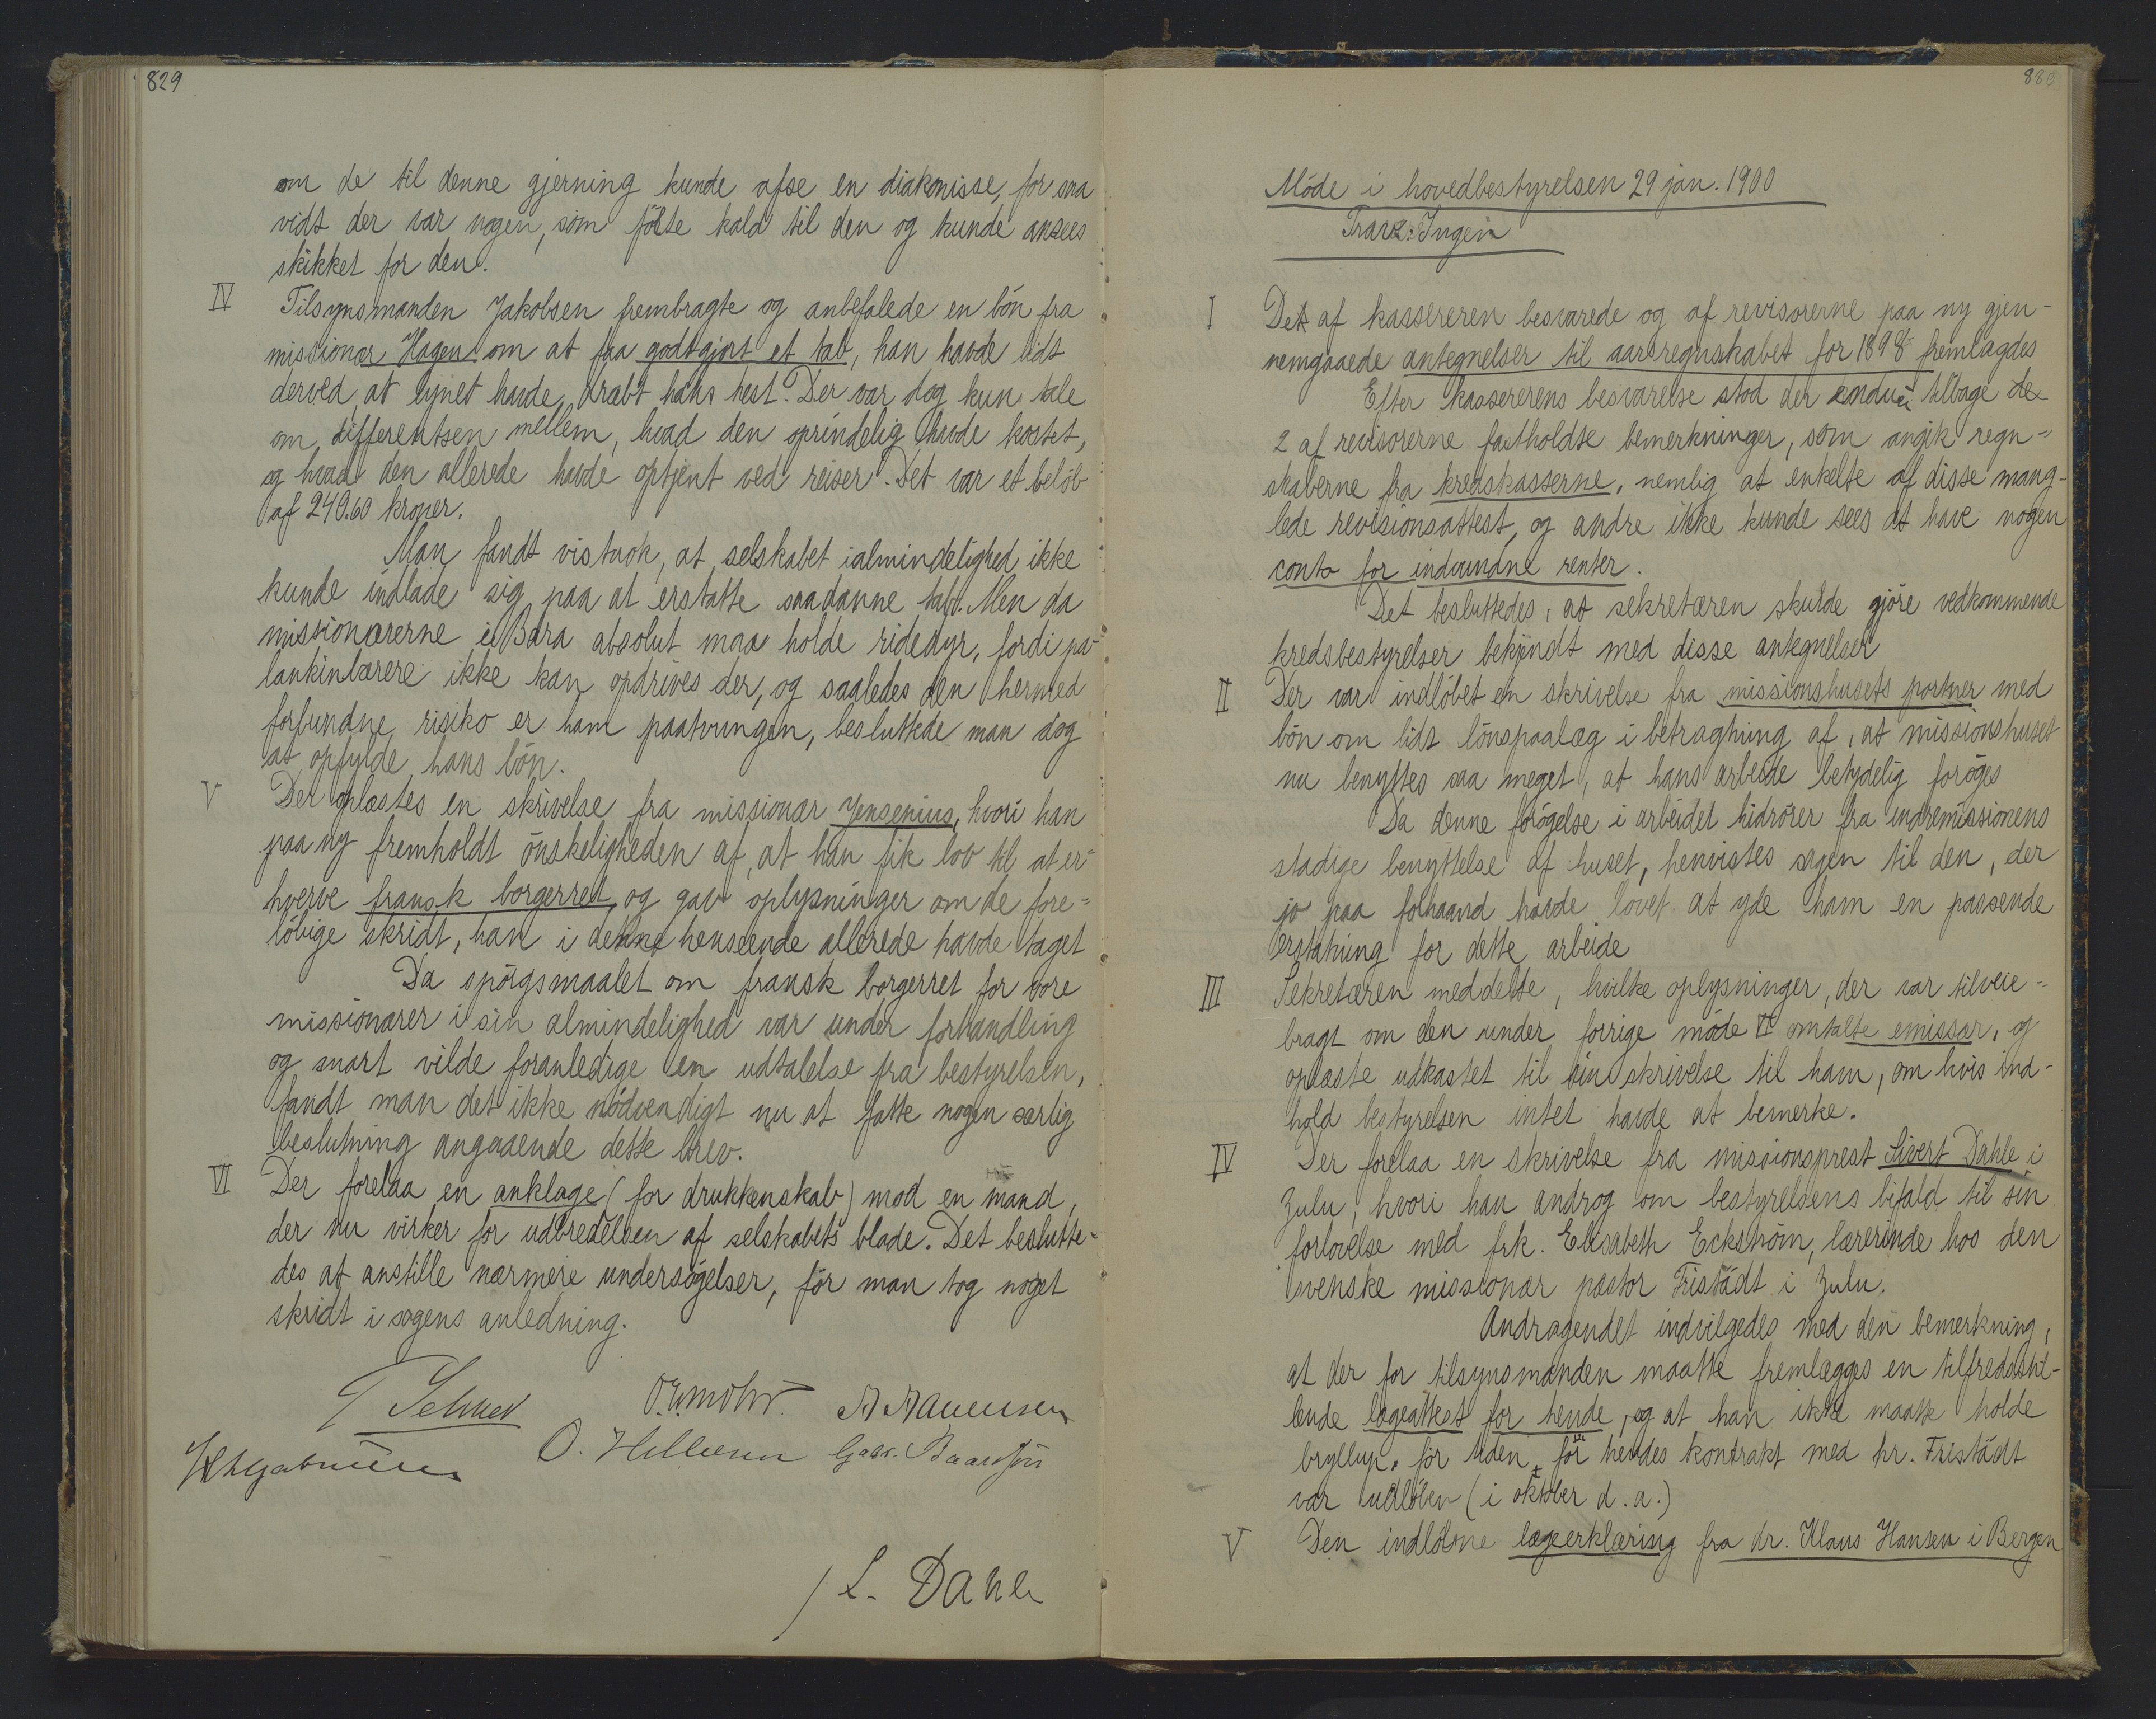 829
om de til denne gjerning kunde afse en diakonisse, for saa
vidt der var nogen, som fölte kald til den og kunde ansees
skikket for den.
IV Tilsynsmanden Jakobsen frembragte og anbefalede en bön fra
missionær Hagen om at faa godtgjort et tab, han havde lidt
derved, at lynet havde dræbt hans hest. Der var dog kun tale
om differentsen mellem, hvad den oprindelig havde kostet,
og hvad den allerede havde optjent ved reiser. Det var et belöb
af 249.60 kroner.
Man fandt vistnok, at selskabet ialmindelighed ikke
kunde indlade sig paa at erstatte saadanne tab. Men da
missionærerne i Bara absolut maa holde ridedyr, fordi pa-
lankinbærere ikke kan opdrives der, og saaledes den hermed
forbundne risiko er ham paatvungen, besluttede man dog
at opfylde hans bön.
V Der oplæstes en skrivelse fra missionær Jensenius, hvori han
paa ny fremholdt önskeligheden af, at han fik lov til at er-
hverve fransk borgerret, og gav oplysninger om de fore=
löbige skridt, han i denne henseende allerede havde taget
Da spörgsmaalet om fransk borgerret for vore
missionærer i sin almindelighed var under forhandling
og snart vilde foranledige en udtalelse fra bestyrelsen,
fandt man det ikke nödvendigt nu at fatte nogen særlig
beslutning angaaende dette brev.
VI Der forelaa en anklage (for drukkenskab) mod en mand,
der nu virker for udbredelsen af selskabets blade. Det beslutte-
des at anstille nærmere undersögelser, för man tog noget
skridt i sagens anledning.
O. Hillesen
L. Dahle
Möde i hovedbestyrelsen 29 jan. 1900
Frav: Ingen
I Det af kassereren besvarede og af revisorerne paa ny gjen-
nemgaaede antegnelser til aarsregnskabet for 1898 fremlagdes
Efter kassererens besvarelse stod der endnu tilbage de
2 af revisorerne fastholdte bemerkninger, som angik regn-
skaberne fra kredskasserne, nemlig at enkelte af disse mang-
lede revisionsattest, og andre ikke kunde sees at have nogen
conto for indvundne renter.
Det besluttedes, at sekretæren skulde gjöre vedkommende
kredsbestyrelser bekjendt med disse antegnelser
II Der var indlöbet en skrivelse fra missionshusets portner med
bön om lidt lönspaalæg i betragtning af, at missionshuset
nu benyttes saa meget, at hans arbeide betydelig foröges
Da denne forögelse i arbeidet hidrörer fra indremissionens
stadige benyttelse af huset, henvistes sagen til den, der
jo paa forhaand havde lovet at yde ham en passende
erstatning for dette arbeide
III Sekretæren meddelte, hvilke oplysninger, der var tilveie-
bragt om den under forrige möde VI omtalte emissær, og
oplæste udkastet til sin skrivelse til ham, om hvis ind-
hold bestyrelsen intet havde at bemerke.
IV Der forelaa en skrivelse fra missionsprest Sivert Dahle i
Zulu, hvori han androg om bestyrelsens bifald til sin
forlovelse med frk. Elisabeth Eckström, lærerinde hos den
svenske missionær pastor Fristädt i Zulu.
Andragendet indvilgedes med den bemerkning,
at der for tilsynsmanden maatte fremlægges en tilfredsstil-
lende lægeattest for hende, og at han ikke maatte holde
bryllup för tiden for hendes kontrakt med hr. Fristädt
var udlöben (i oktober d. a.)
V Den indlöbne lægeerklæring fra dr. Klaus Hansen i Bergen